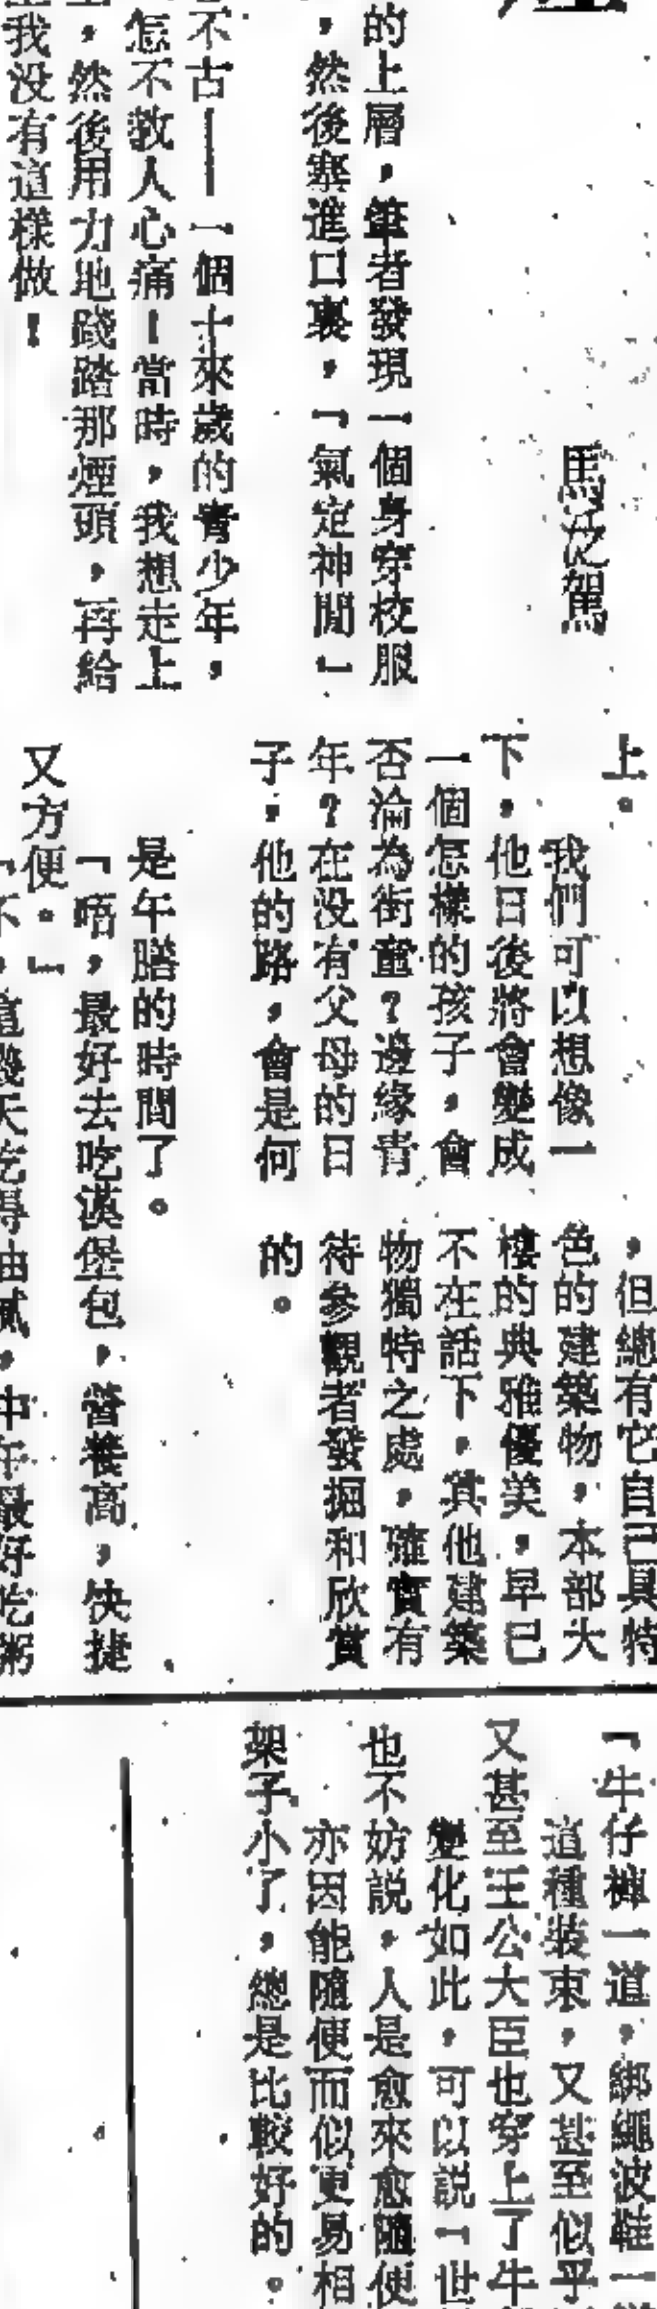 馬泛駕
的上層，筆者發現一個身穿校服
，然後塞進口裏，「氣定神閒」
不古——一個十來歲的青少年，
怎不教人心痛！當時，我想走上
，然後用力地踐踏那煙頭，再給
我没有這樣做！
上。
我們可以想像一
下，他日後將會變成
一個怎樣的孩子，會
否淪為街童？邊緣青
年？在没有父母的日
子，他的路，會是何
是午膳的時間了。
「唔，最好去吃漢堡包，營養高，快捷
又方便。」
「不，這幾天吃得油膩，中午最好吃粥
，但總有它自己具特
色的建築物，本部大
樓的典雅優美，早已
不在話下，其他建築
物獨特之處，確實有
待參觀者發掘和欣賞
的。
「牛仔褲一道，綁繩波鞋一
這種裝束，又甚至似乎
又甚至王公大臣也穿上了牛
變化如此，可以説「世
也不妨説，人是愈來愈隨便
亦因能隨便而似更易相
架子小了，總是比較好的。